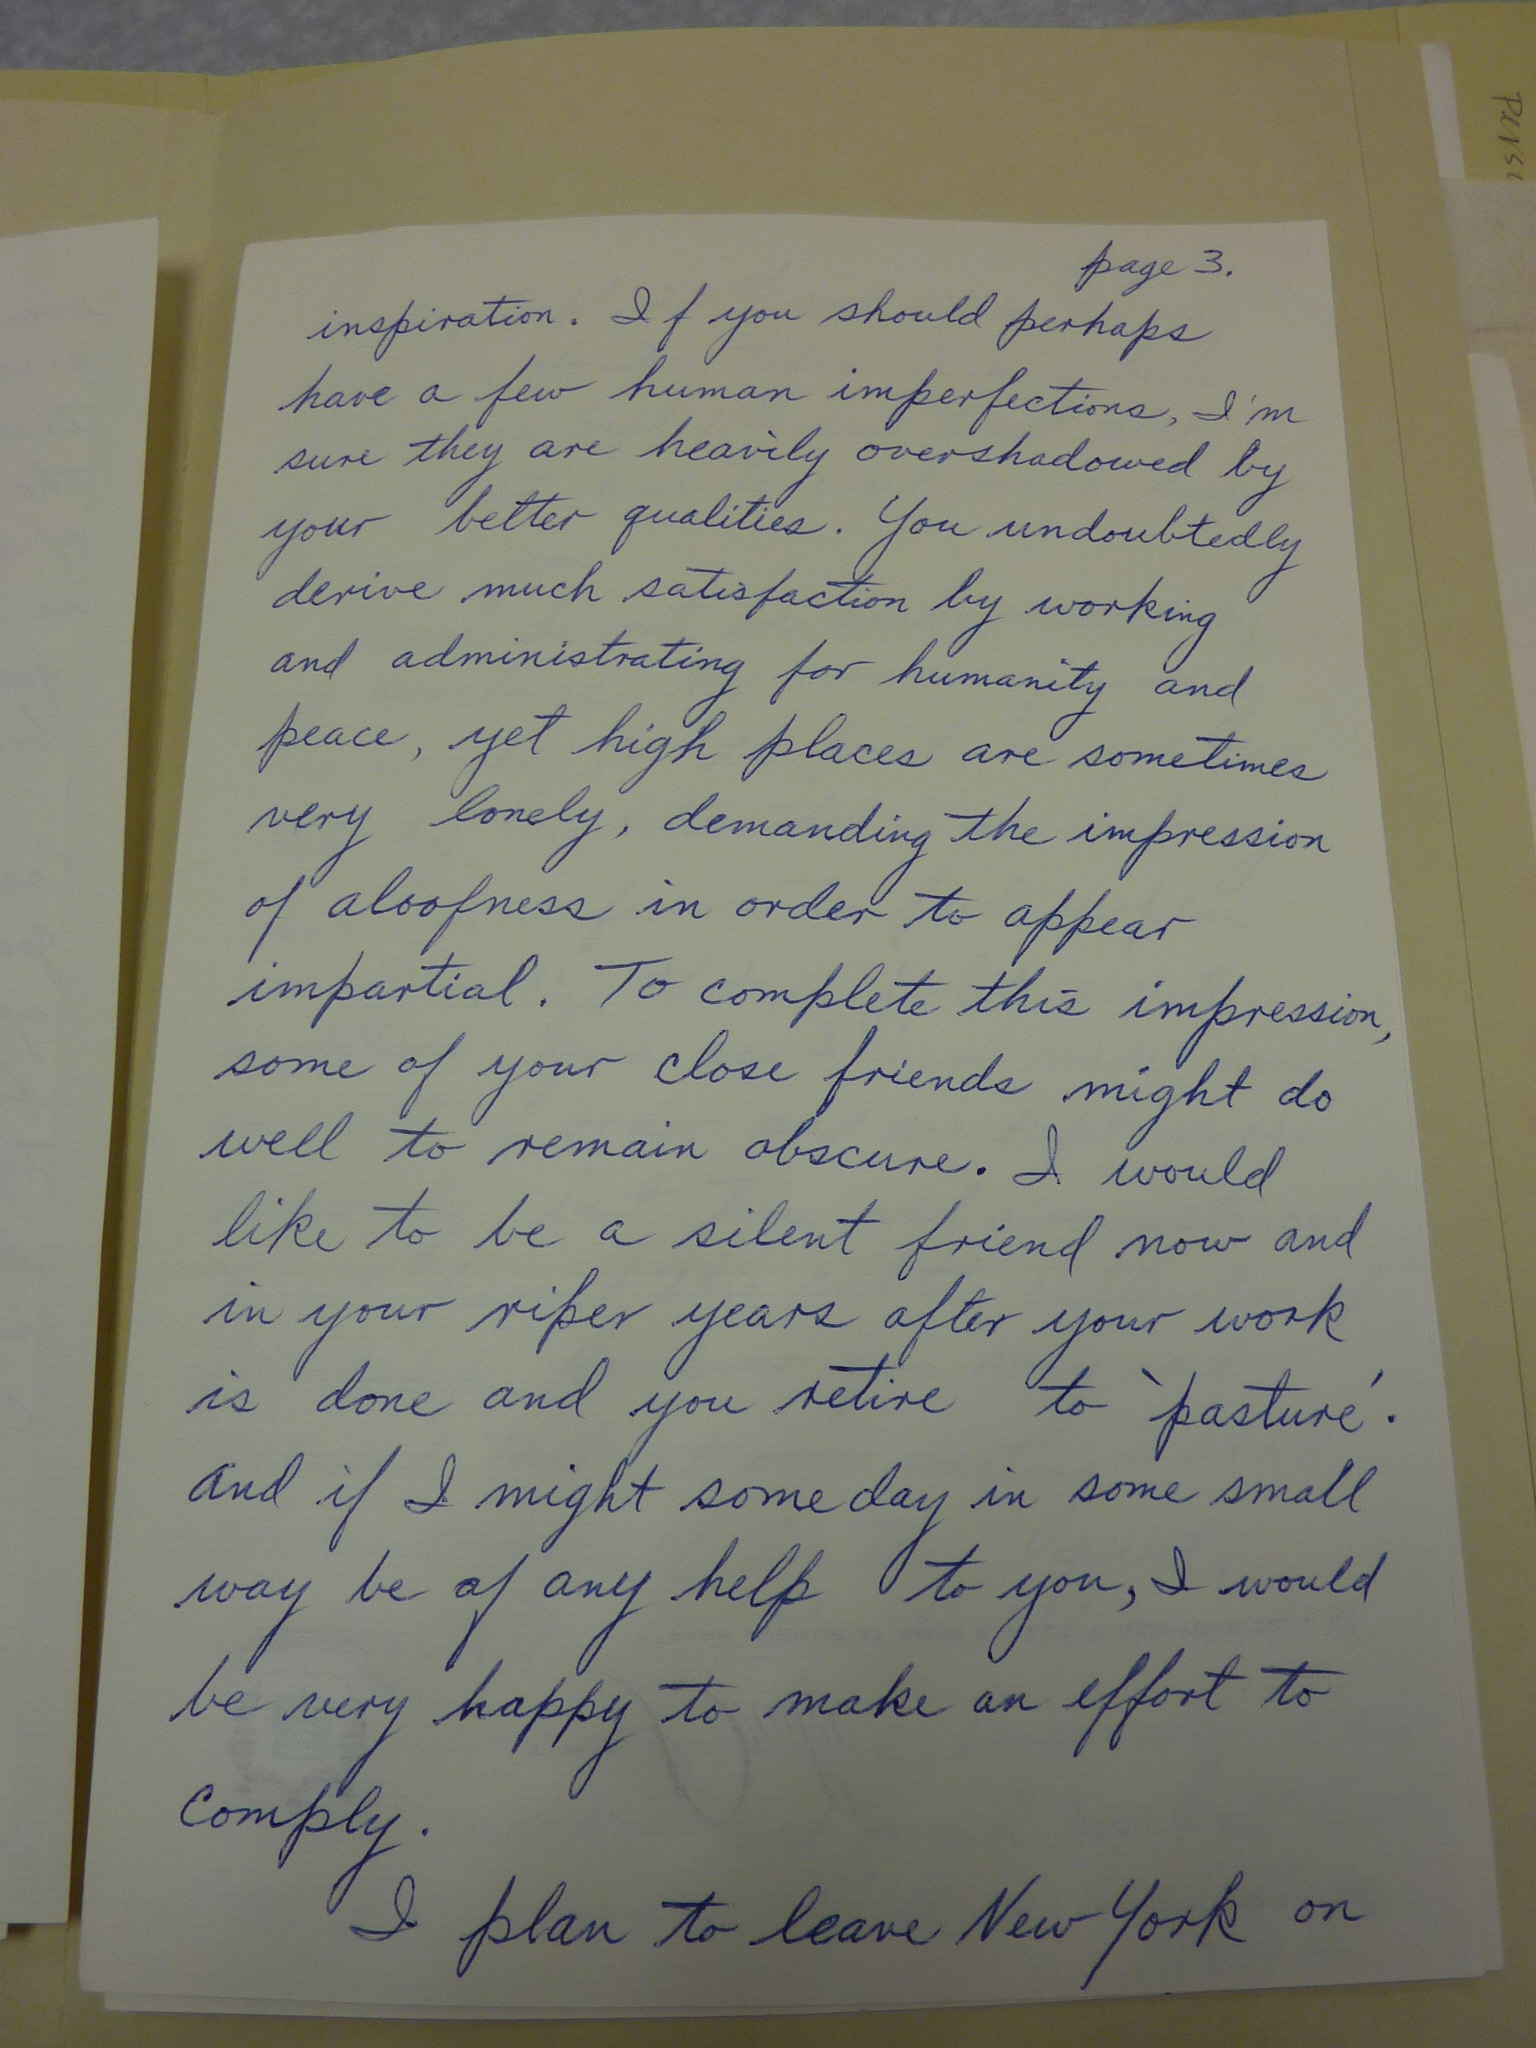 page 3.
inspiration. If you should perhaps
have a few human imperfections, I'm
sure they are heavily overshadowed by
your better qualities. You undoubtedly
derive much satisfaction by working
and administrating for humanity and
peace, yet high places are sometimes
very lonely, demanding the impression
of aloofness in order to appear
impartial. To complete this impression,
some of your close friends might do
well to remain obscure. I would
like to be a silent friend now and
in your riper years after your work
is done and you retire to 'pasture'.
And if I might someday in some small
way be of any help to you, I would
be very happy to make an effort to
comply.
I plan to leave New York on